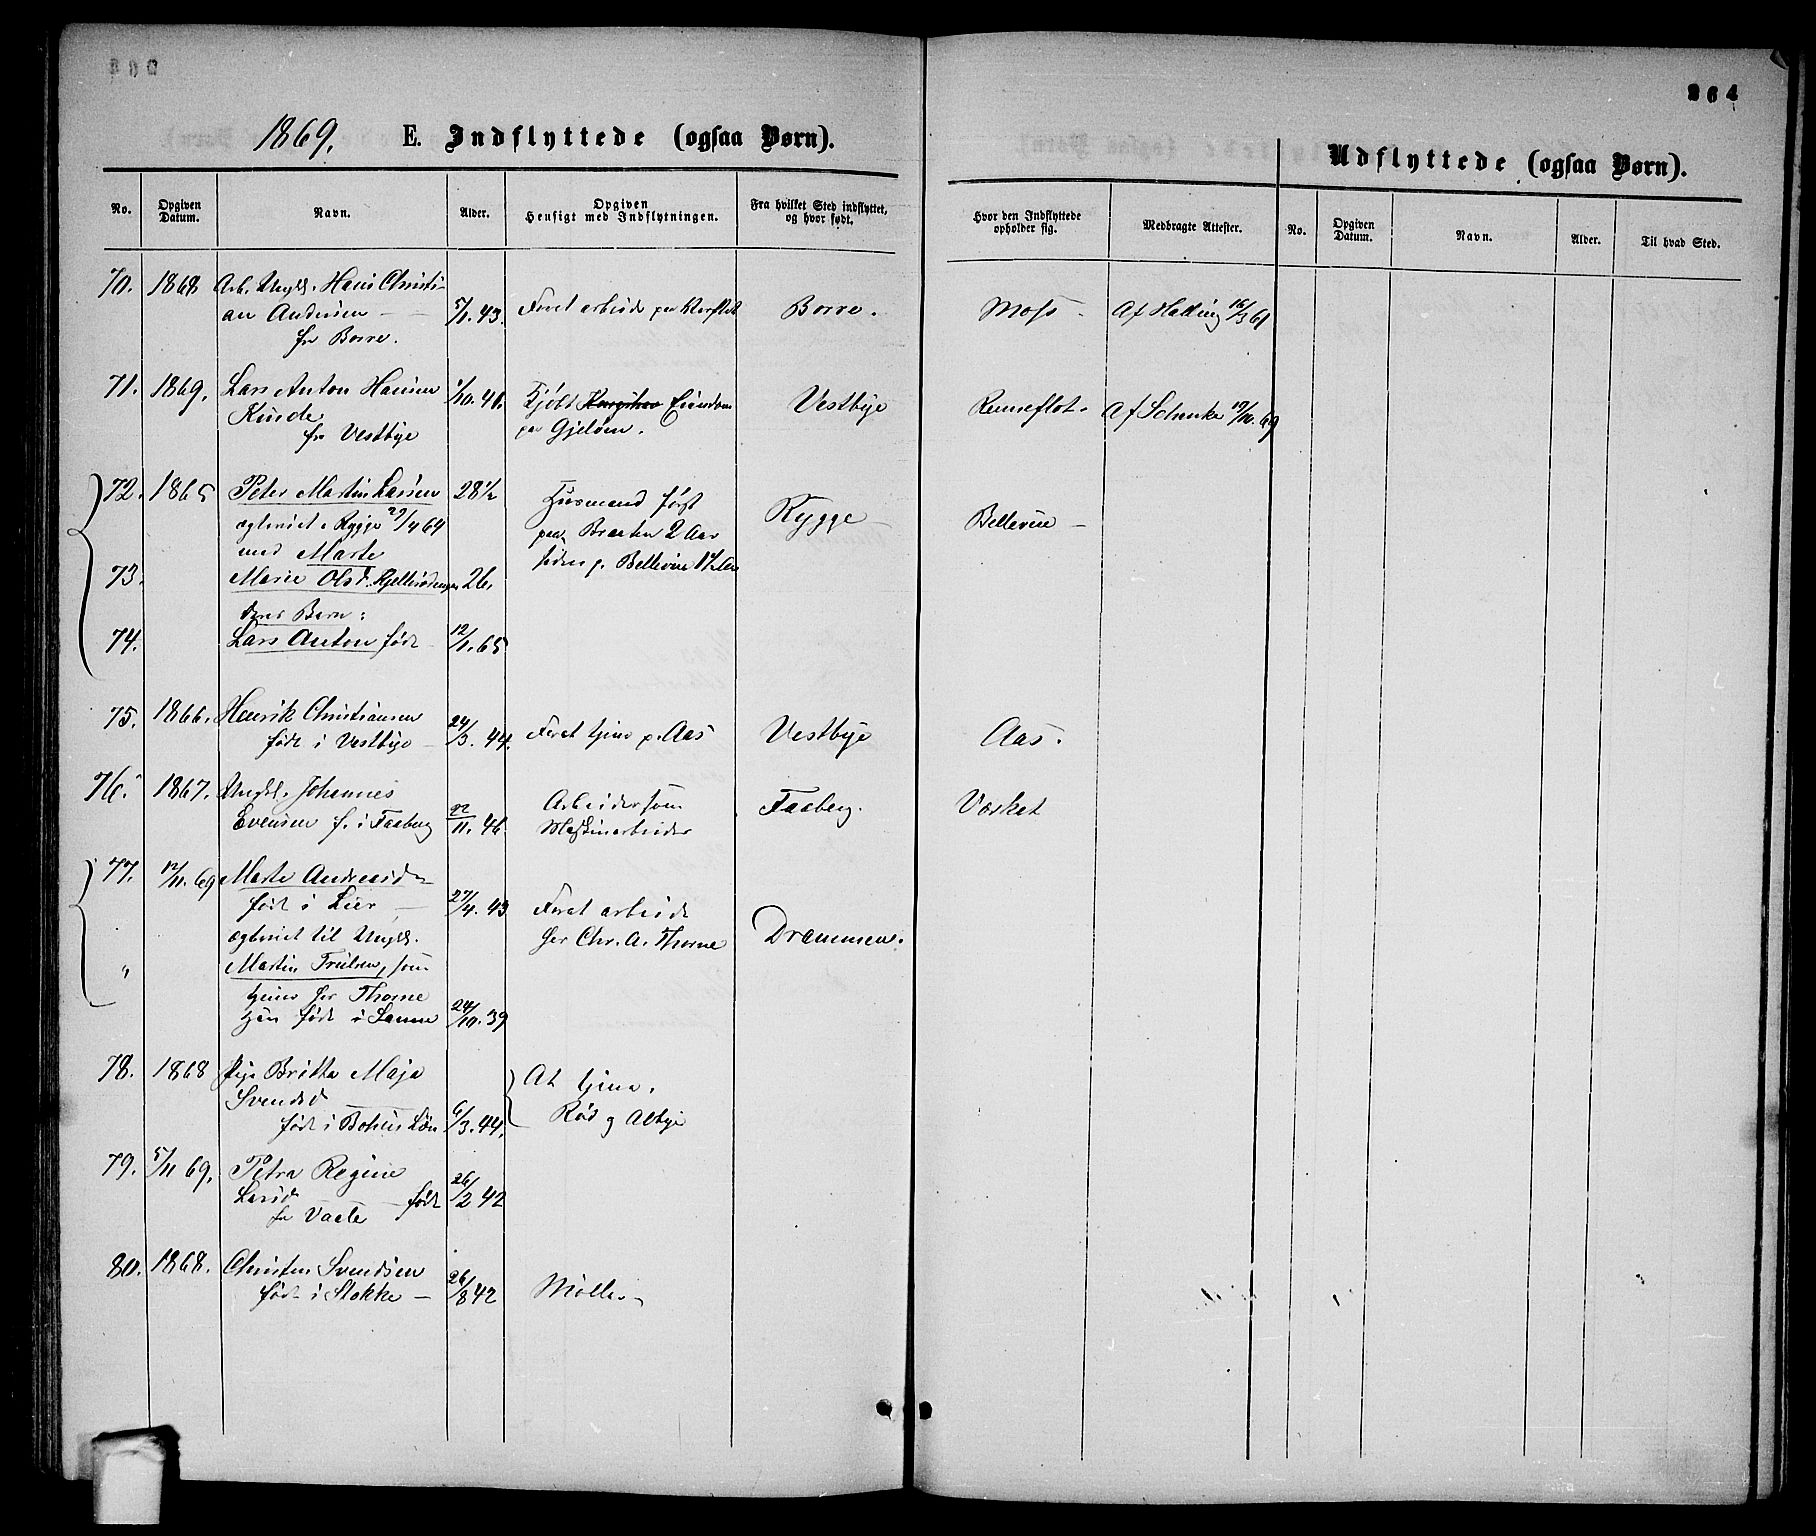 264
1869. E. Indflyttede (ogsaa Børn).
Udflyttede (ogsaa Børn).
No. Opgiven Datum. Navn. Alder. Opgiven Hensigt med Indflytningen. Fra hvilket Sted indflyttet, og hvor født. Hvor den Indflyttede opholder sig. Medbragte Attester. No. Opgiven Datum. Navn. Alder. Til hvad Sted.
70. 1868 Arb. Ungk. Hans Christi-
an Andersen 5/1. 43. Faaet arbeide paa Borre. Moss Af 16/3 61
fr Borre.
71. 1869. Lars Anton Hansen 1/10. 41. Kjøbt Eiendom Vestbye Renneflot. Af Schenke 19/10. 69
Kinde paa Gjeløen.
fr Vestbye
72. 1865 Peter Martin Larsen 28 1/2 Husmand først Rygge Bellevue
ægteviet i Rygge 29/4 64 paa Braaten 2 Aar
med Marte siden p. Bellevue
73. Marie Olsd. 26.
deres Barn:
74. Lars Anton født 12/1. 65
75. 1866. Henrik Christiansen
født i Vestbye 24/3. 44. Faaet tjene p. Aas Vestbye Aas.
76. 1867. Ungk. Johannes Arbeider som Faaberg. Værket
Evensen f. i Faaberg 22/11. 46. Maskinarbeider
77. 12/11. 69 Marte Andreasd
født i Lier 27/4. 43 Faaet arbeide
ægteviet til Ungk. her Chr. A. Thorne Drammen.
" Martin Trulsen, som
tjener her Thorne
Han født i Sanne 24/10. 39
78. 1868 Pige Britta Maja At tjene.
Svendsd Rød og Alby
født i Bohus Län 6/3. 44.
79. 5/11 69. Petra Regine
Larsd født 26/2 42
fr Vaale
80. 1868. Christen Svendsen
født i Stokke 26/8 42 Møller